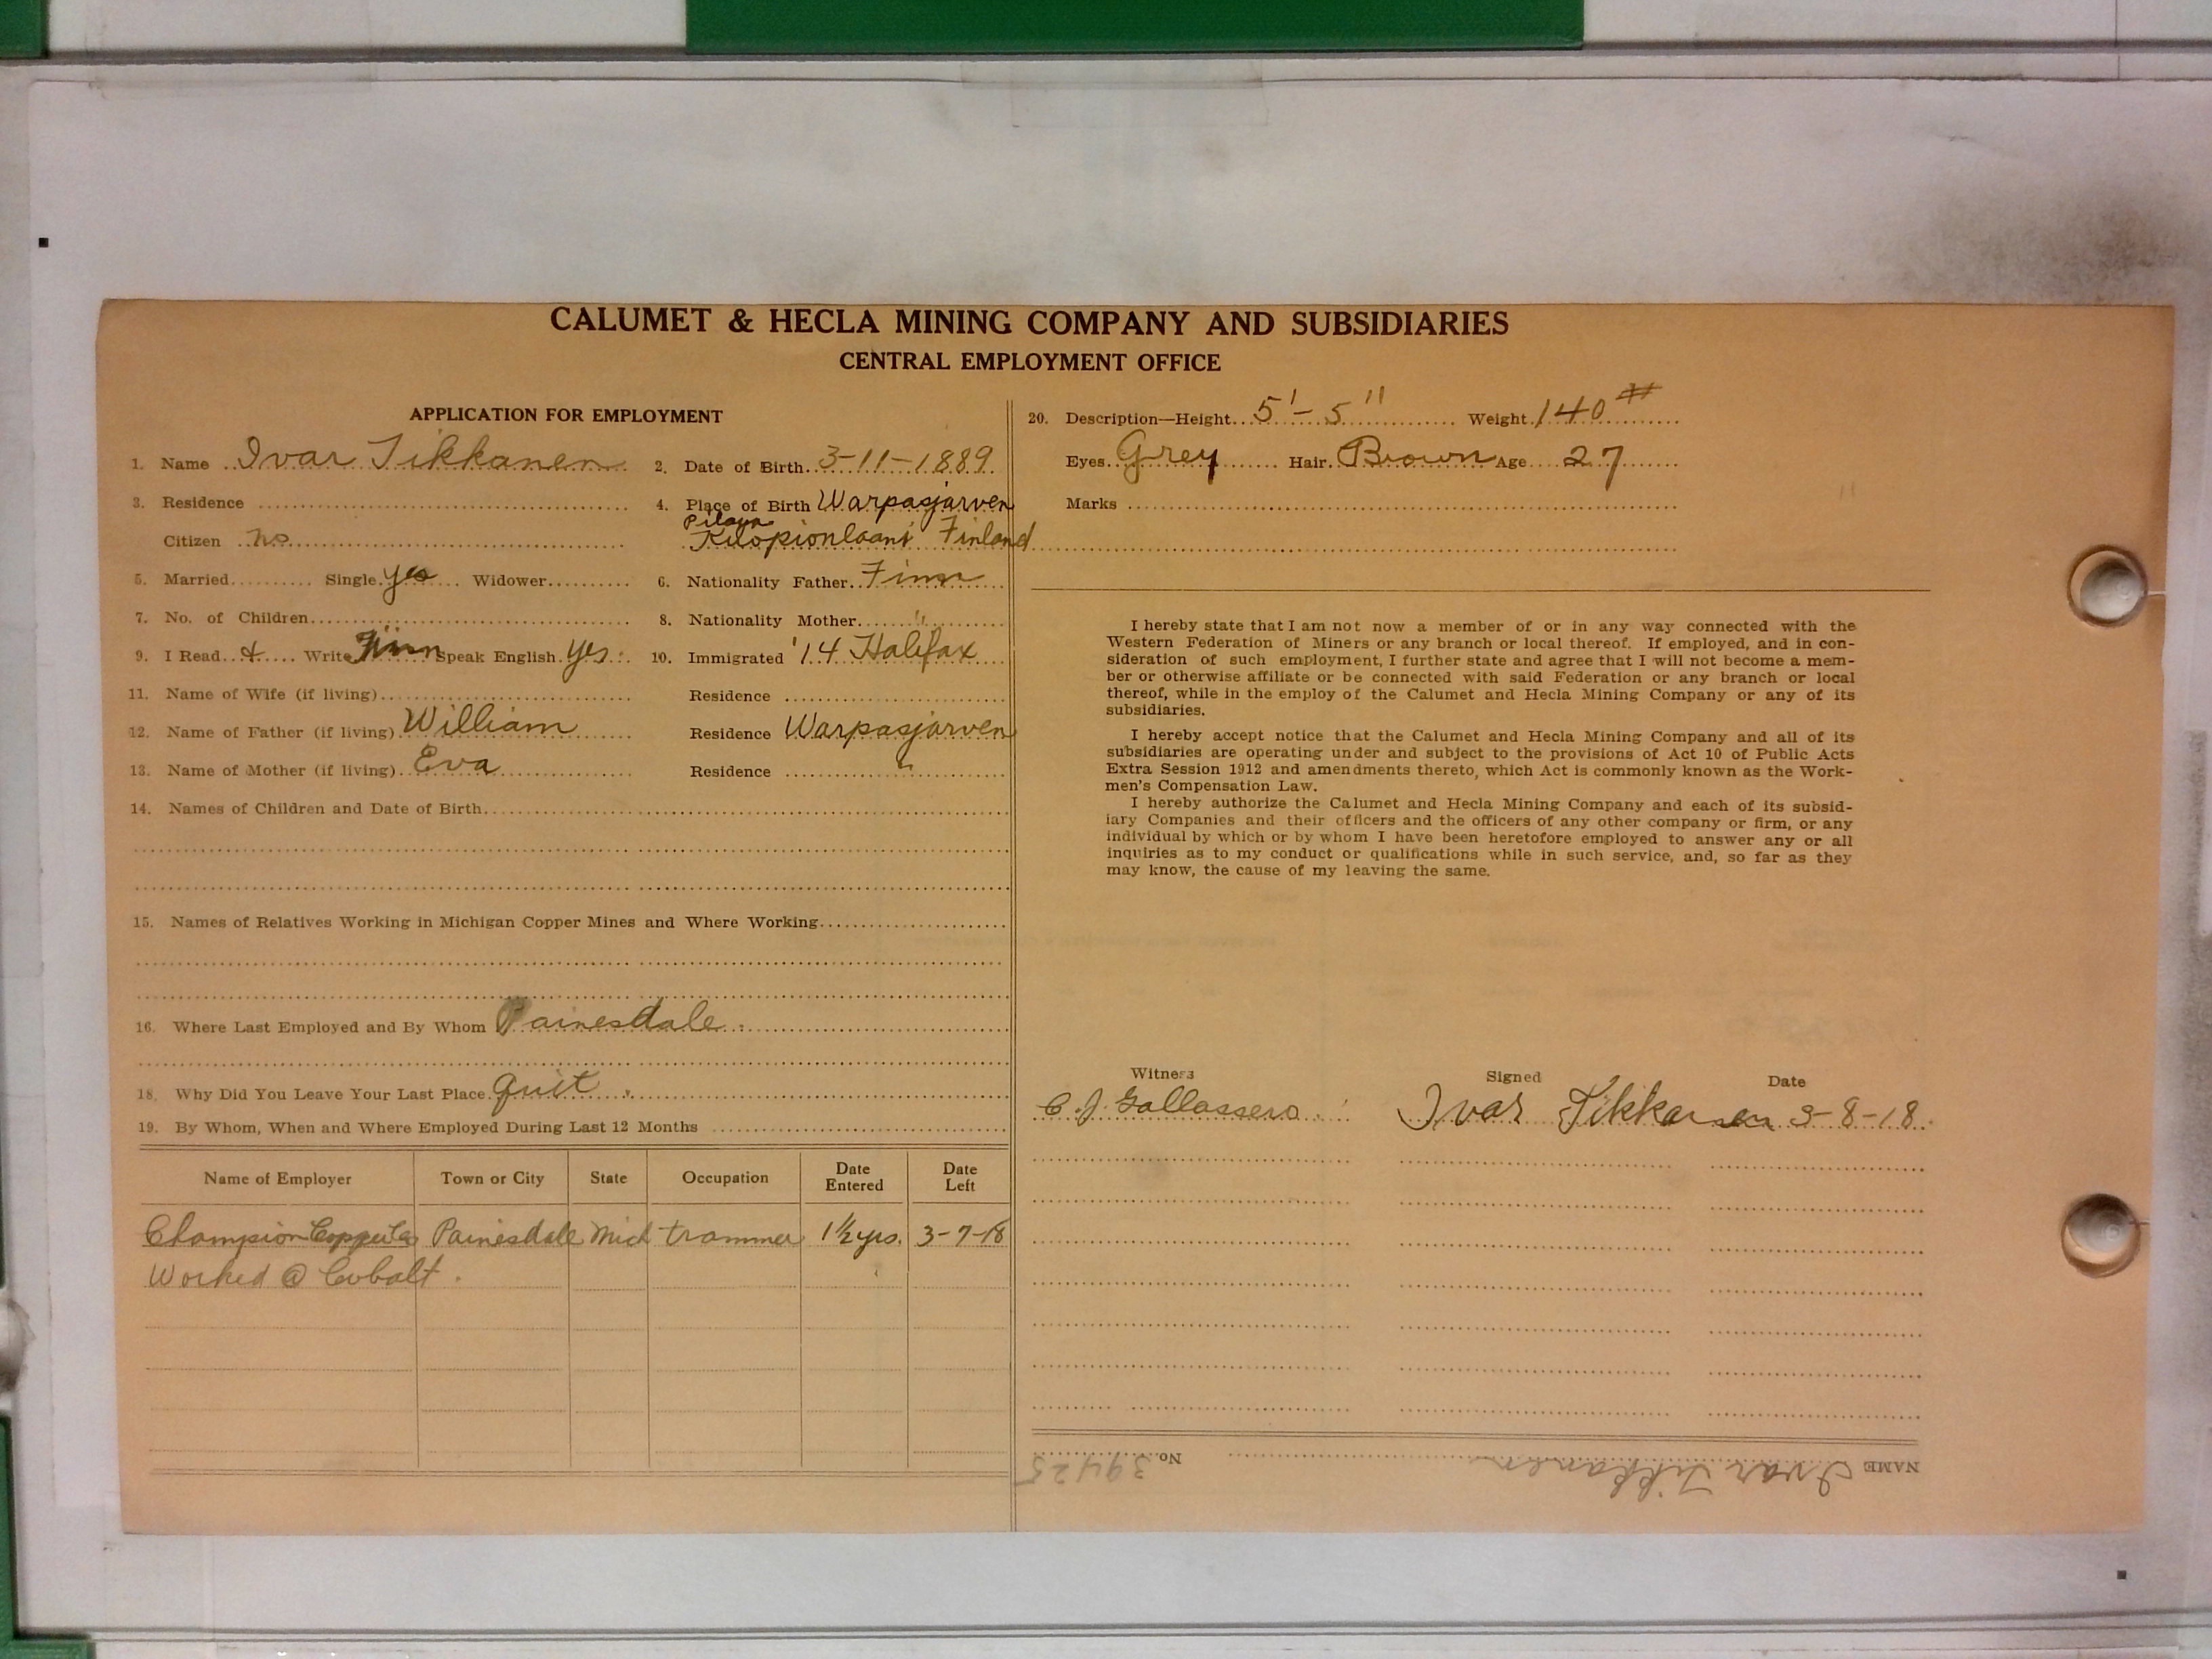 CALUMET & HECLA MINING COMPANY AND SUBSIDIARIES
CENTRAL EMPLOYMENT OFFICE
APPLICATION FOR EMPLOYMENT
1. Name Ivar Tikkanen 2. Date of Birth 3-11-1889
3. Residence 4. Place of Birth Warpasjarven
Citizen no Finland
5. Married Single yes Widower 6. Nationality Father Finn
7. No. of Children 8. Nationality Mother "
9. I Read & Write Finn Speak English yes 10. Immigrated '14 Halifax
11. Name of Wife (if living) Residence
12. Name of Father (if living) William Residence Warpasjarven
13. Name of Mother (if living) Eva Residence "
14. Names of Children and Date of Birth
15. Names of Relatives Working in Michigan Copper Mines and Where Working
16. Where Last Employed and By Whom Painesdale
18. Why Did You Leave Your Last Place quit
19. By Whom, When and Where Employed During Last 12 Months
Name of Employer Town or City State Occupation Date Entered Date Left
Champion Copper Co Painesdale Mich trammer 1½ yrs. 3-7-18
Worked @ Cobalt.
20. Description—Height 5'-5" Weight 140#
Eyes Grey Hair Brown Age 27
Marks
I hereby state that I am not now a member of or in any way connected with the
Western Federation of Miners or any branch or local thereof. If employed, and in con-
sideration of such employment, I further state and agree that I will not become a mem-
ber or otherwise affiliate or be connected with said Federation or any branch or local
thereof, while in the employ of the Calumet and Hecla Mining Company or any of its
subsidiaries.
I hereby accept notice that the Calumet and Hecla Mining Company and all of its
subsidiaries are operating under and subject to the provisions of Act 10 of Public Acts
Extra Session 1912 and amendments thereto, which Act is commonly known as the Work-
men's Compensation Law.
I hereby authorize the Calumet and Hecla Mining Company and each of its subsid-
iary Companies and their officers and the officers of any other company or firm, or any
individual by which or by whom I have been heretofore employed to answer any or all
inquiries as to my conduct or qualifications while in such service, and, so far as they
may know, the cause of my leaving the same.
Witness Signed Date
C. J. Gallassero Ivar Tikkanen 3-8-18
NAME Ivar Tikkanen No. 39425